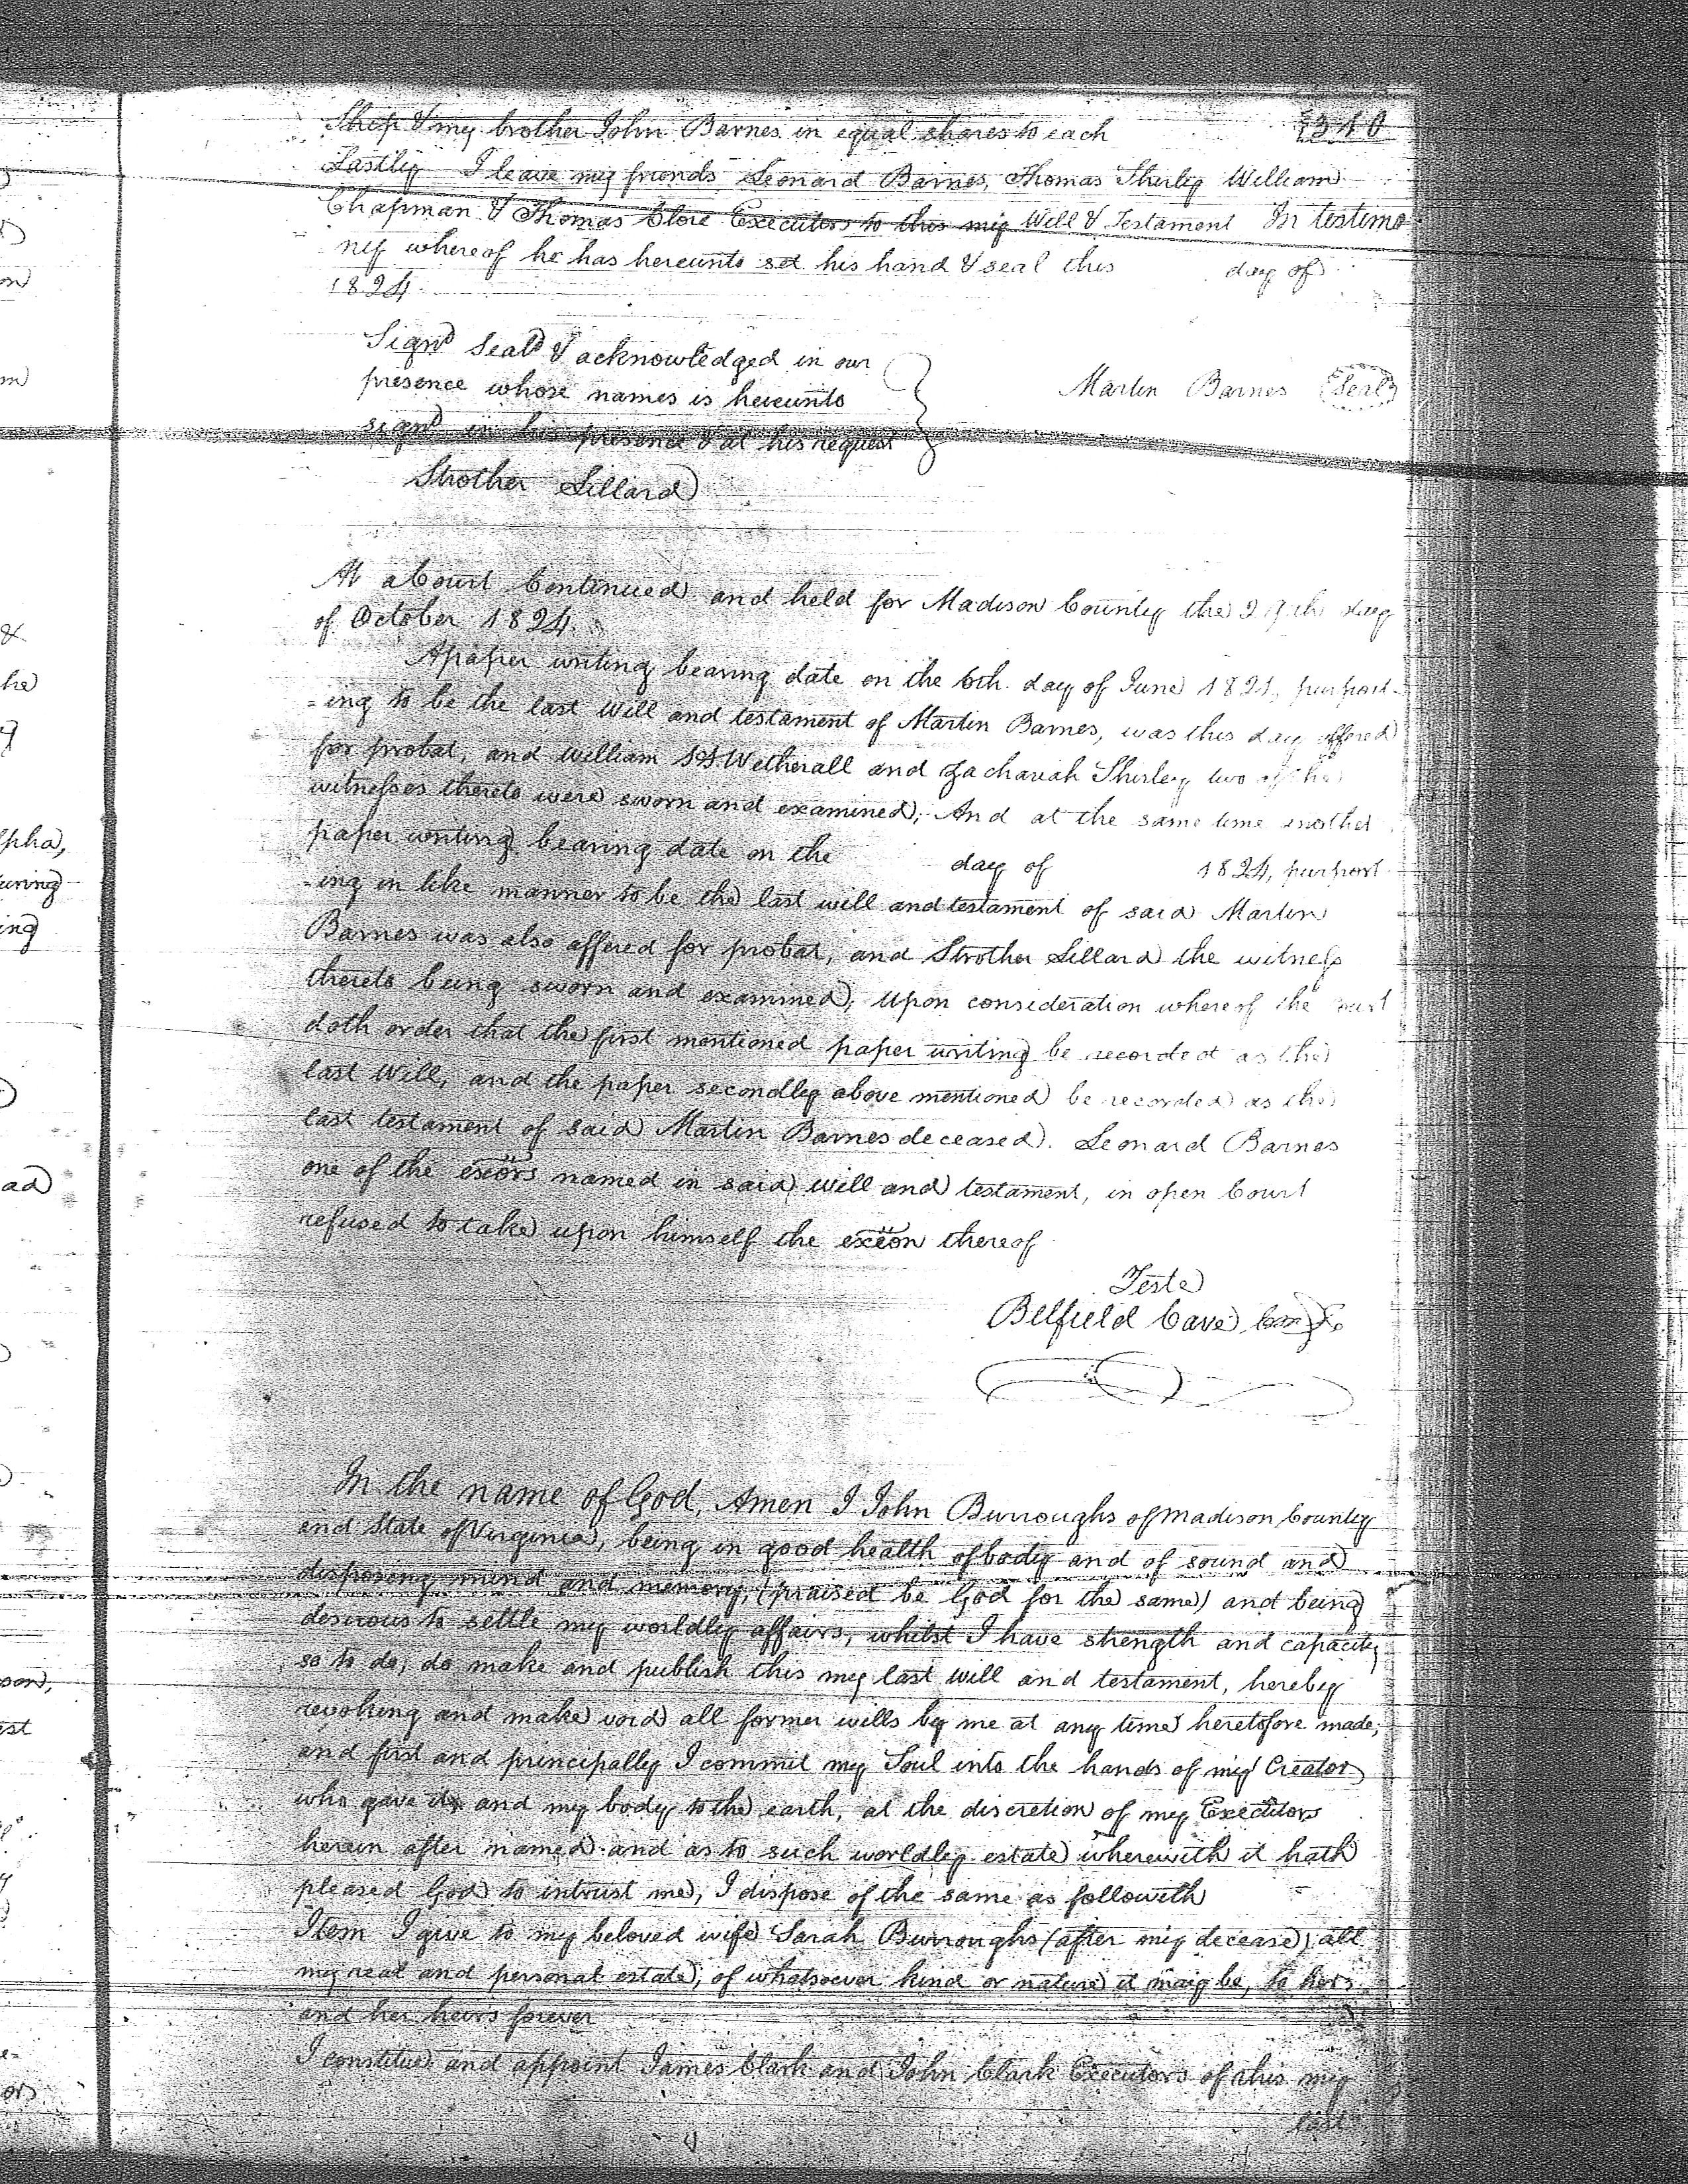 340
Ship & my brother John Barnes in equal shares to each
Lastly I leave my friends Leonard Barnes, Thomas Shirley William
Chapman & Thomas Clore Executors to this my Will & Testament In testimo
ny whereof he has hereunto set his hand & seal this day of
1824
Signd Seald & acknowledged in our
presence whose names is hereunto
signd in his presence & at his request
Martin Barnes Seal
Strother Sillard
At a Court Continued and held for Madison County the day
of October 1824.
A paper writing bearing date on the 6th. day of June 1821, purport-
=ing to be the last will and testament of Martin Barnes, was this day offered
for probat, and William Wetherall and Zachariah Shirley two of the
witnesses thereto were sworn and examined; And at the same time another
paper writing bearing date on the day of 1824, purport
-ing in like manner to be the last will and testament of said Martin
Barnes was also affered for probat, and Strother Sillard the witness
thereto being sworn and examined; Upon consideration whereof the Court
doth order that the first mentioned paper writing be recorded as the
last Will, and the paper secondly above mentioned be recorded as the
last testament of said Martin Barnes deceased. Leonard Barnes
one of the exors named in said will and testament, in open Court
refused to take upon himself the exeon thereof
Teste
Belfield Cave
In the name of God, Amen I John Burroughs of Madison County
and State of Virginia, being in good health of body and of sound and
disposing mind and memory, (praised be God for the same) and being
desirous to settle my worldly affairs, whilst I have strength and capacity
so to do; do make and publish this my last will and testament, hereby
revoking and make void all former wills by me at any time heretofore made;
and first and principally I commit my Soul into the hands of my Creator
who gave it and my body to the earth, at the discretion of my Executors
herein after named and as to such worldly estate wherewith it hath
pleased God to intrust me, I dispose of the same as followeth
Item I give to my beloved wife Sarah Burroughs (after my decease) all
my real and personal estate, of whatsoever kind or nature it maig be, to hers
and her heirs forever
I constitue and appoint James Clark and John Clark Executors of this my
last